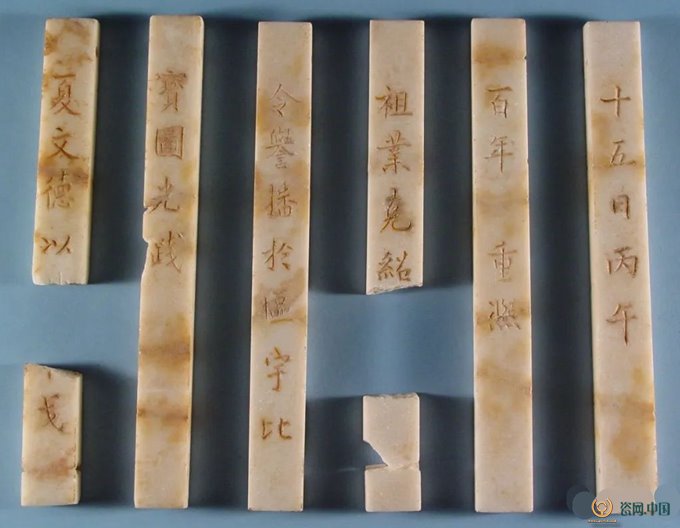 十五日丙午
百年重熙
祖業克紹
令譽播於宇比
寶圖光踐
夏文德以
戈
瓷网.中国